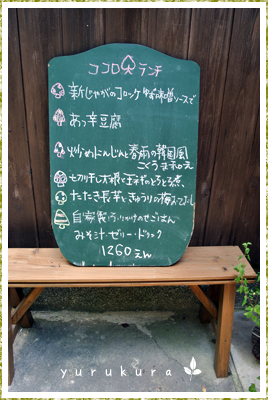 ココロ ランチ
新じゃがのコロッケ 味噌ソースで
あつ辛豆腐
炒めにんじんと春雨の韓国風
ごくうまネロえ
切り干し大根と玉ネギのとろとろ煮
たたき長芋ときゅうりの梅
自家製ふりかけのせごはん
みそ汁・ゼリー・ドリンク
1260えん
yurukura